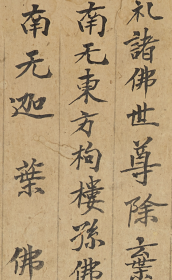 礼諸佛世尊除棄
南无東方拘樓孫佛
南无迦葉佛